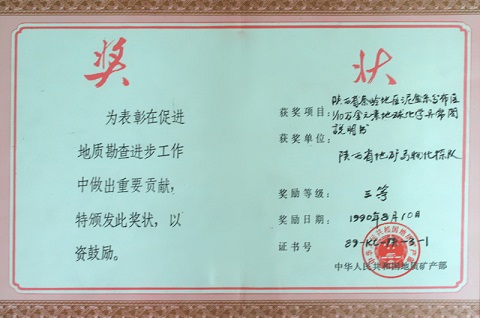 奖状
为表彰在促进
地质勘查进步工作
中做出重要贡献，
特颁发此奖状，以
资鼓励。
获奖项目：陕西省秦岭地区泥盆系分布区
1/10万金元素地球化学异常图
说明书
获奖单位：
陕西省地矿局物化探队
奖励等级：三等
奖励日期：1990年8月10日
证书号 89-KC-
-3-1
中华人民共和国地质矿产部